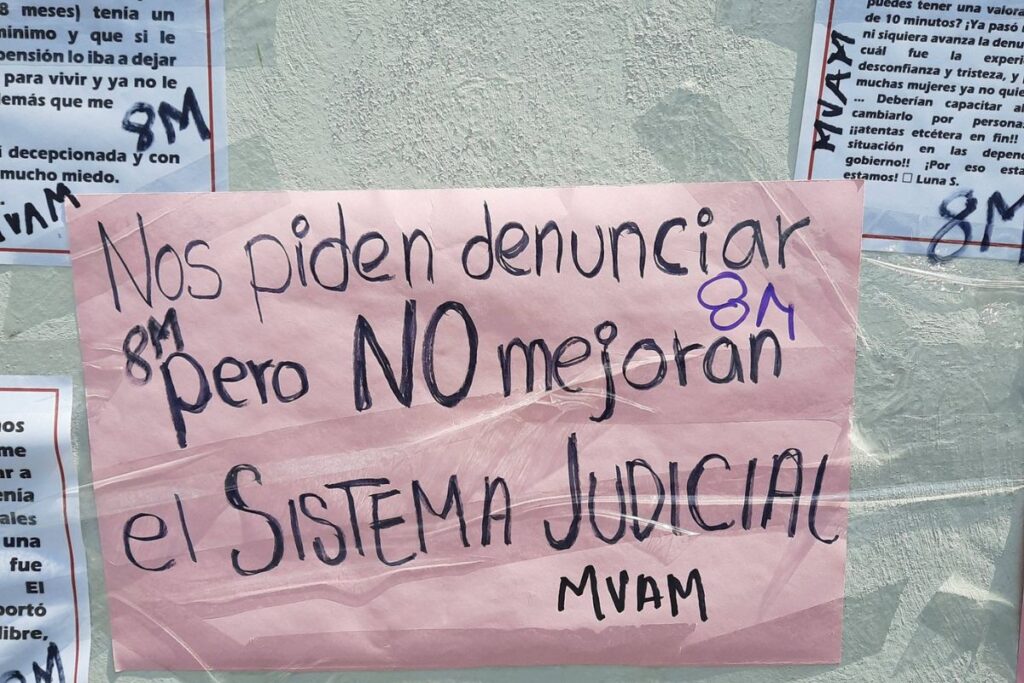 8 meses) tenía un
mínimo y que si le
pensión lo iba a dejar
para vivir y ya no le
demás que me
8M
decepcionada y con
mucho miedo.
MVAM
puedes tener una valora
de 10 minutos? ¡Ya pasó
ni siquiera avanza la denu
cuál fue la experi
desconfianza y tristeza, y
muchas mujeres ya no quie
... Deberían capacitar al
cambiarlo por persona
¡¡atentas etcétera en fin!!
situación en las depend
gobierno!! ¡Por eso esta
estamos! ☐ Luna S.
MVAM
8M
Nos piden denunciar
8M
8M
pero NO mejoran
el SISTEMA JUDICIAL
MVAM
nos
me
ar a
enía
ales
una
fue
El
portó
libre,
8M